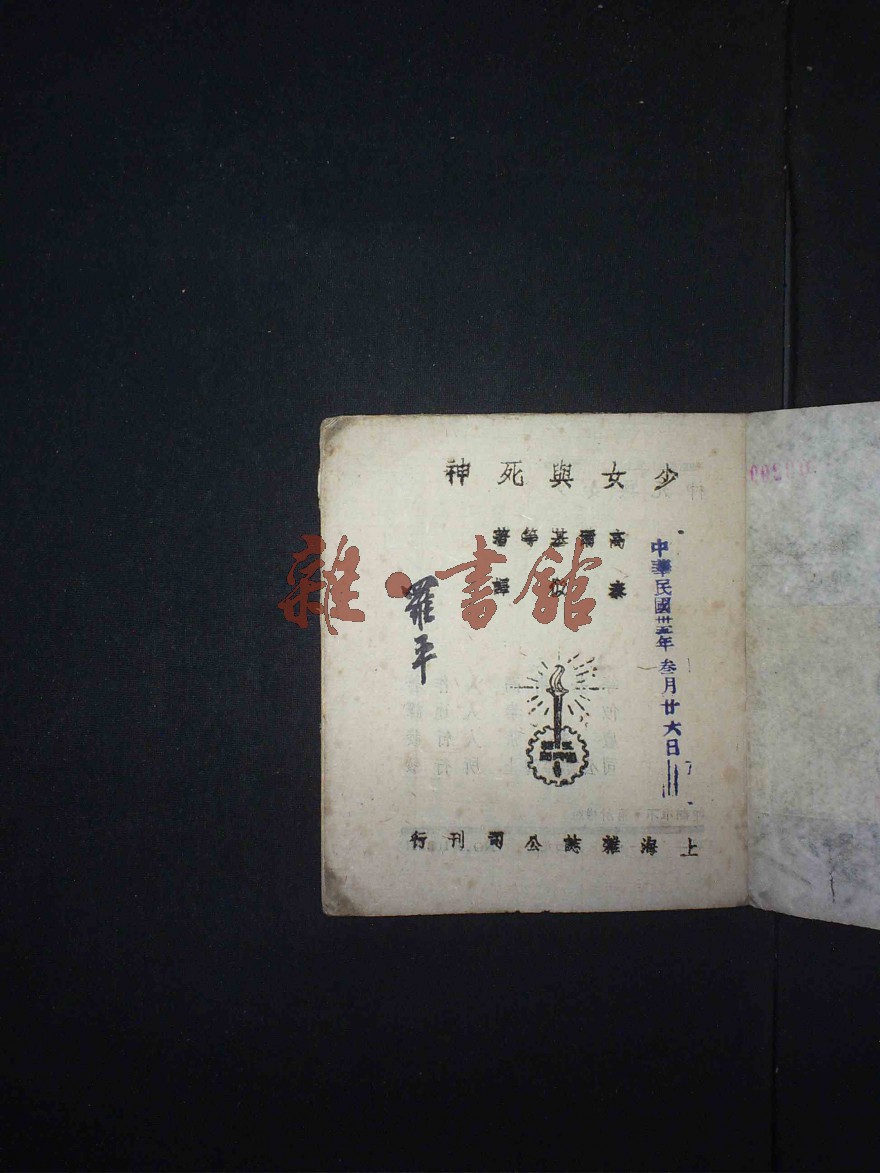 少女與死神
高爾基等著
秦似譯
羅平
中華民國卅五年叁月廿六日
上海雜誌公司刊行
雜·書館